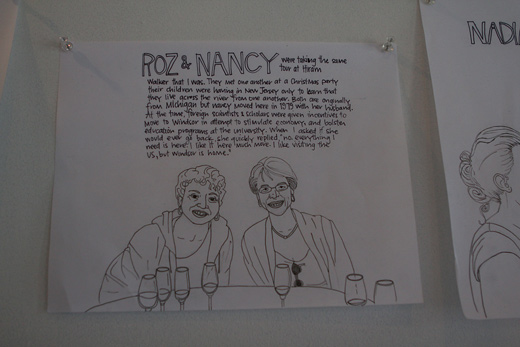 ROZ & NANCY were taking the same
tour at Hiram
Walker that I was. They met one another at a Christmas party
their children were having in New Jersey only to learn that
they live across the river from one another. Both are originally
from Michigan but Nancy moved here in 1979 with her husband.
At the time, foreign scientists & scholars were given incentives to
move to Windsor in attempt to stimulate economy, and bolster
education programs at the university. When I asked if she
would ever go back, she quickly replied, "no, everything I
need is here. I like it here much more. I like visiting the
US, but Windsor is home."
NADI